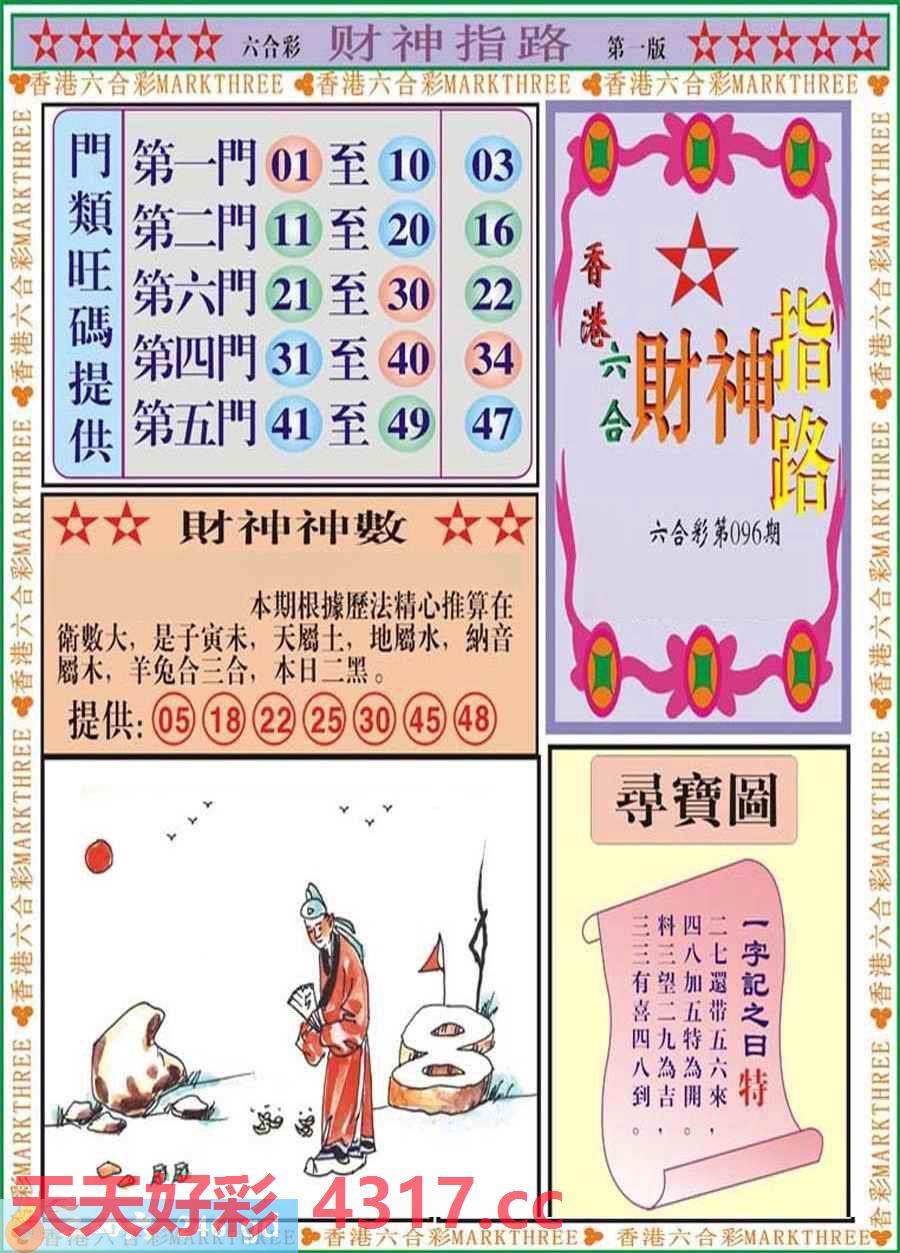 六合彩 财神指路 第一版
香港六合彩MARKTHREE 香港六合彩MARKTHREE 香港六合彩MARKTHREE
門類旺碼提供
第一門 01 至 10 03
第二門 11 至 20 16
第六門 21 至 30 22
第四門 31 至 40 34
第五門 41 至 49 47
香港六合
財神指路
六合彩第096期
財神神數
本期根據歷法精心推算在
衛數大，是子寅未，天屬土，地屬水，納音
屬木，羊兔合三合，本日二黑。
提供: 05 18 22 25 30 45 48
尋寶圖
一字記之曰 特
二七還带五六來，
四八加五特為開。
料三望二九為吉，
三三有喜四八到。
天天好彩 4317.cc
香港六合彩MARKTHREE 香港六合彩MARKTHREE